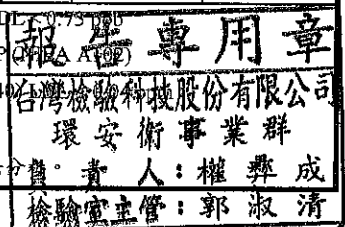 報告專用章
台灣檢驗科技股份有限公司
環安衛事業群
負責人：權彝成
檢驗室主管：郭淑清